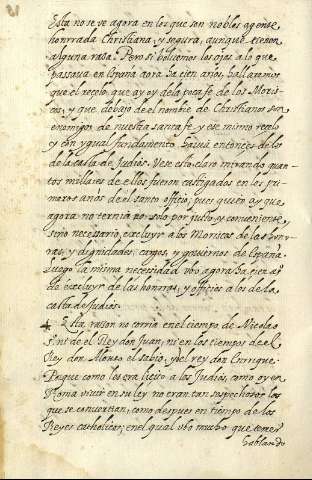 Esta no se ve agora en los que son nobles agente
honrrada Christiana, y segura, aunque tengan
alguna raça. Pero si boluemos los ojos a lo que
passaua en España aora ha cien años, hallaremos
que el recelo que ay oy de la poca fe de los Moris
cos, y que debajo de el nombre de Christianos son
enemigos de nuestra santa fe y ese mismo recelo
y con ygual fundamento hauia entonces de los
de la casta de Judios. Vese esto claro mirando quan
tos millares de ellos fueron castigados en los pri
meros anos de el santo officio; pues quien ay que
agora no ternia no solo por justo, y conueniente,
sino necesario, excluyr a los Moriscos de las hon
rras, y dignidades, cargos, y gouiernos de España
Luego la misma necesidad vbo agora ha cien aº
de excluyr de las honrras, y officios a los de la
casta de Judios.
4 Esta rason no corrio en el tiempo de Nicolao
ni de el Rey don Juan, ni en los tiempos de el
Rey don Alonso el sabio, y el rey don Enrrique
Porque como les era licito a los Judios, como oy en
Roma viuir en su ley no eran tan sospechosos los
que se conuertian, como despues en tiempo de los
Reyes catholicos; en el qual vbo mucho que temer
hablando